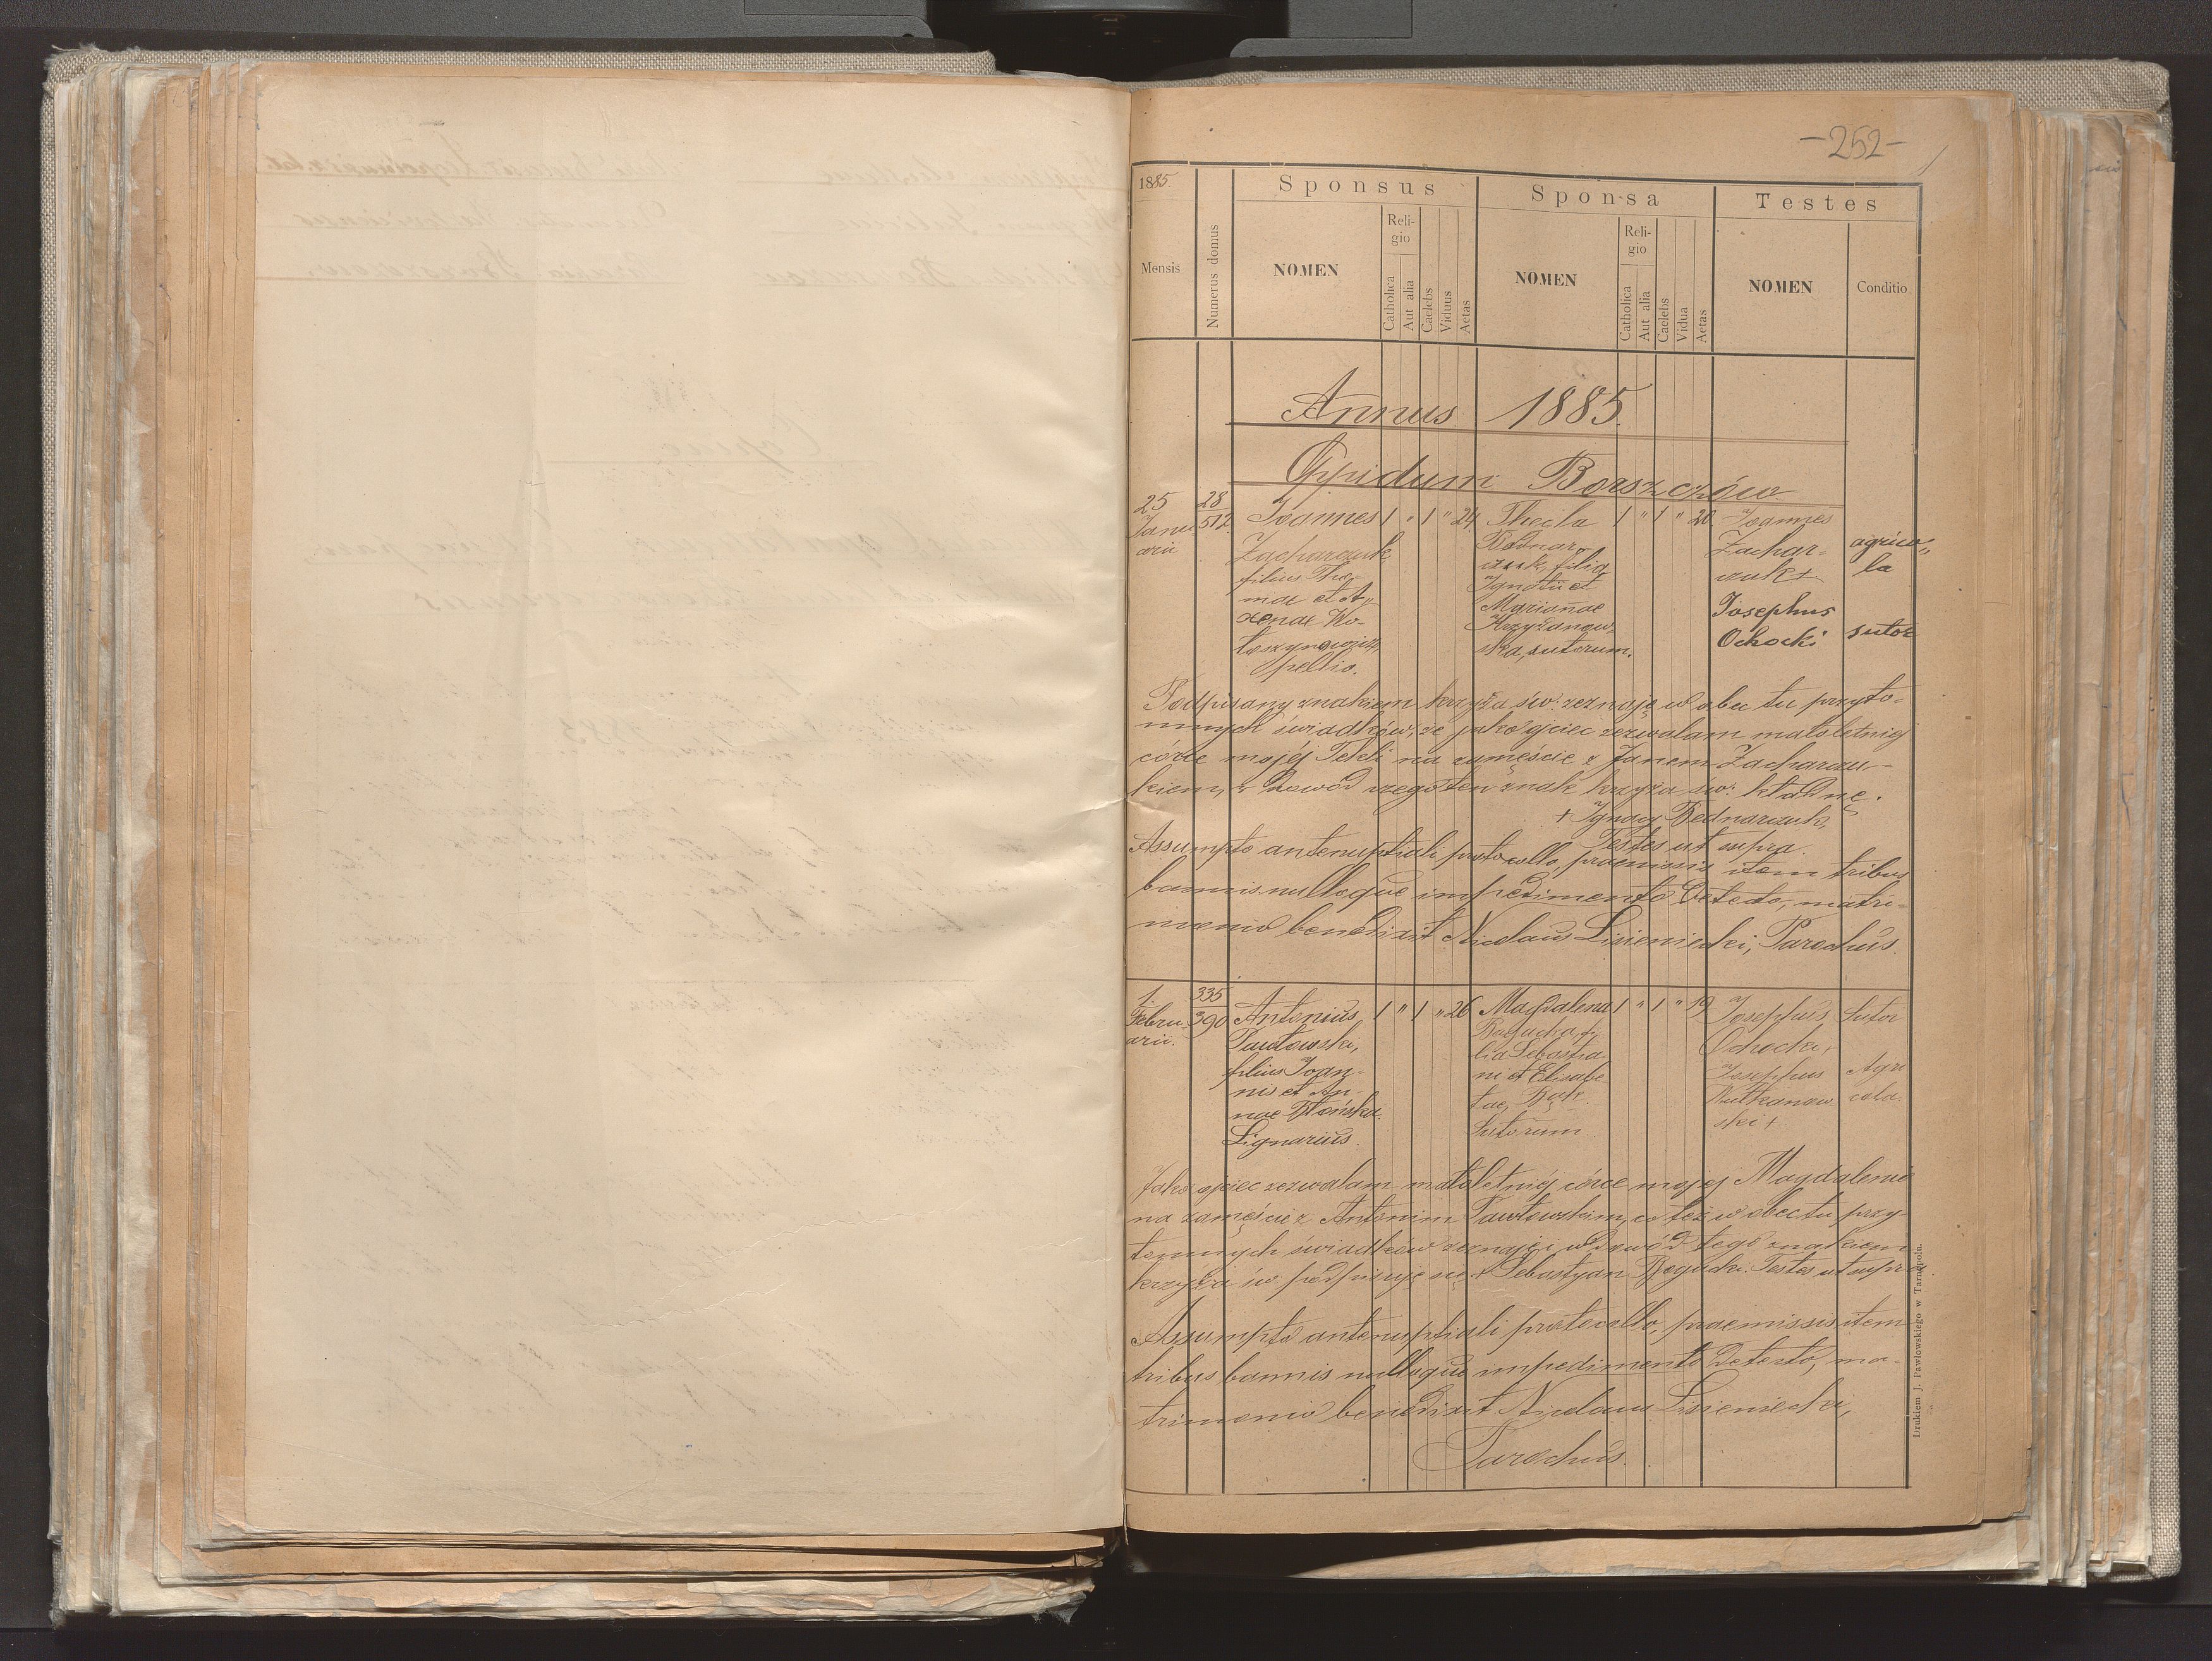 -252-
1885.
Sponsus
Sponsa
Testes
Mensis
Numerus domus
NOMEN
Religio
Catholica
Aut alia
Caelebs
Viduus
Aetas
NOMEN
Religio
Catholica
Aut alia
Caelebs
Vidua
Aetas
NOMEN
Conditio
Annus 1885.
Oppidum Borszczów
25 Januarii
28
512.
Joannes
Zacharczuk
filius Tho-
mae et A„
xenae
pellio.
1 " 1 " 24
Thecla
Bednar-
czuk, filia
Ignatii et
Mariannae
Krzyżanow„
ska, sutorum.
1 " 1 " 20
Joannes
Zachar=
czuk +
Josephus
Ochocki
agrico„
la
sutor
Podpisany znakiem krzyża św. zeznaję w obec tu przyto=
mnych świadków, że jako ojciec zezwalam małoletniej
córce mojéj Tekli na zamęście z Janem Zacharczu-
kiem, w dowód czego ten znak krzyża św: kładnę.
+ Ignacy Bednarczuk,
Testes ut supra.
Assumpto antenuptiali protocollo, praemissis item tribus
bannis nulloque impedimento detecto, matri=
monio benedixit Nicolaus Lisieniecki, Parochus.
1. Febru
arii.
335
390
Antonius
Pawłowski,
filius Joan-
nis et An-
nae Błońska.
Lignarius.
1 " 1 " 26
Magdalena
fi-
lia Sebastia
ni et Elisabe
tae
Sutorum.
1 " 1 " 19
Josephus
Ochocki +
Josephus
ski +
Sutor
Agri
cola.
Jako ojciec zezwalam małoletniéj córce mojej Magdalenie
na zamęście z Antonim Pawłowskim, co też w obec tu przy-
tomnych świadków zeznaję i w dowód tego znakiem
krzyża św podpisuję się + Sebastyan Testes ut supra
Assumpto antenuptiali protocollo, praemissis item
tribus bannis nulloque impedimento detecto, ma-
trimonio benedixit Nicolaus Lisieniecki,
Parochus.
Drukiem J. Pawłowskiego w Tarnopolu.